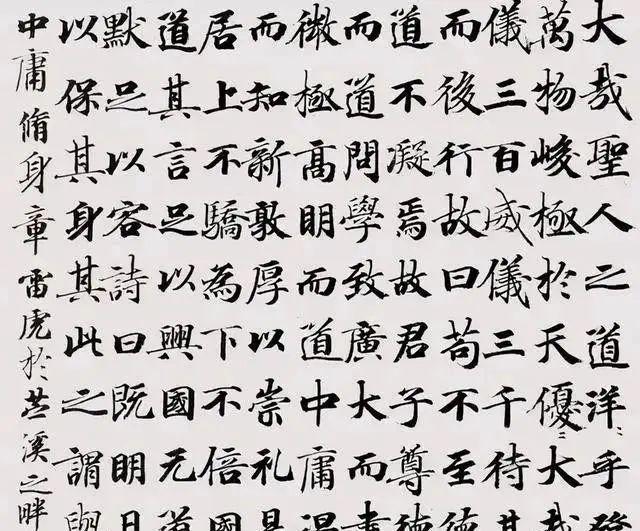 大哉聖人之道洋〻乎發
萬物峻極於天優〻大哉
儀三百威儀三千待其
而後行故曰苟不至德
道不凝焉故君子尊德
而道問學致廣大而盡
微極高明而道中庸温
而知新敦厚以崇礼是
居上不驕為下不倍國
道其言足以興國无道
默足以容詩曰既明且
以保其身其此之謂與
中庸脩身章雷虎於苕溪之畔